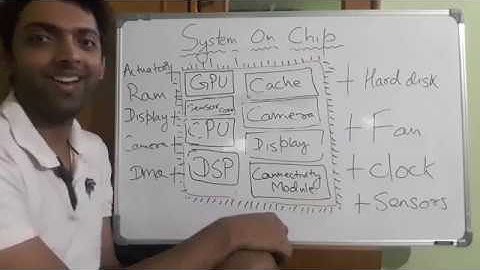 System On Chip
Actuators
Ram
Display +
Camera
Dma +
GPU
Sensor
CPU
DSP
Cache
Camera
Display
Connectivity
Module
+ Hard disk
+ Fan
+ Clock
+ Sensors